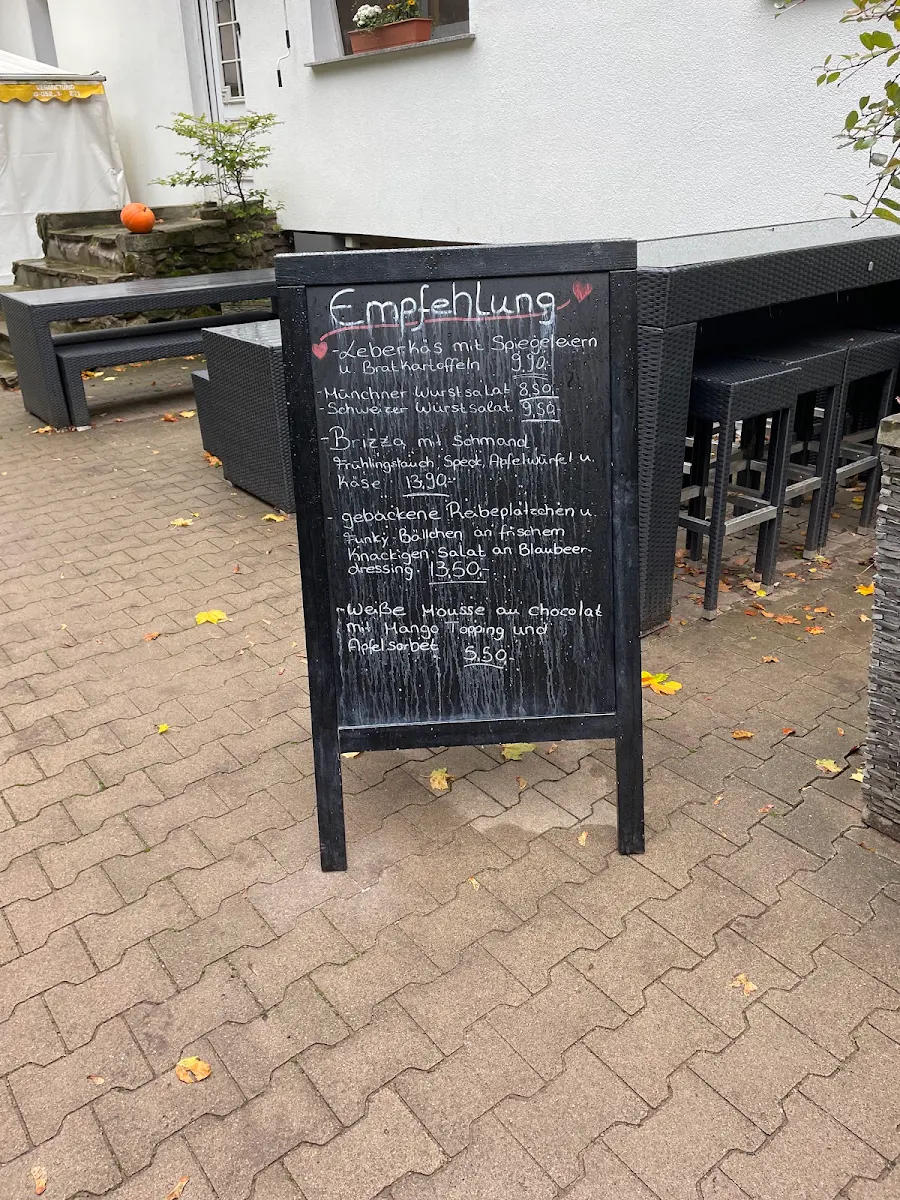 Empfehlung
- Leberkäs mit Spiegeleiern
u Bratkartoffeln 9,90.-
- Münchner Wurstsalat 8,50.-
- Schweizer Wurstsalat 9,50.-
- Brizza mit Schmand
Frühlingslauch, Speck, Apfelwürfel u.
Käse 13,90.-
- gebackene Reibeplätzchen u.
Funky Bällchen an frischem
knackigen Salat an Blaubeer-
dressing 13,50,-
- Weiße Mousse au chocolat
mit Mango Topping und
Apfelsorbet 5,50,-